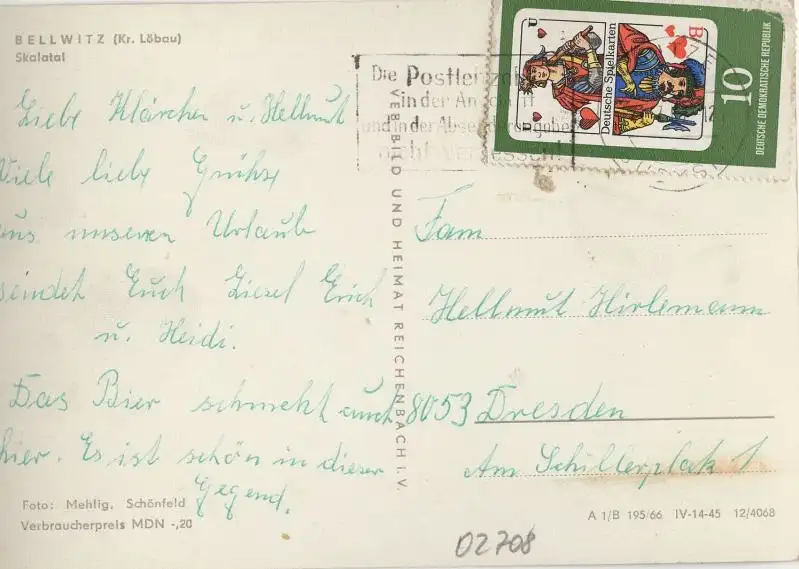 BELLWITZ (Kr. Löbau)
Skalatal
Liebe Klärchen u. Hellmut
Viele liebe Grüße
aus unseren Urlaub
sendet Euch Liesel Erich
u. Heidi.
Das Bier schmekt auch
hier. Es ist schön in dieser
Gegend.
Foto: Mehlig, Schönfeld
Verbraucherpreis MDN -,20
VEB BILD UND HEIMAT REICHENBACH I. V.
Die Postleitzahl
in der Anschrift
und in der Absenderangabe
nicht vergessen!
U
U
Deutsche Spielkarten
B
10
DEUTSCHE DEMOKRATISCHE REPUBLIK
Fam
Hellmut Hirlemann
8053 Dresden
Am Schillerplatz 1
A 1/B 195/66 IV-14-45 12/4068
02708